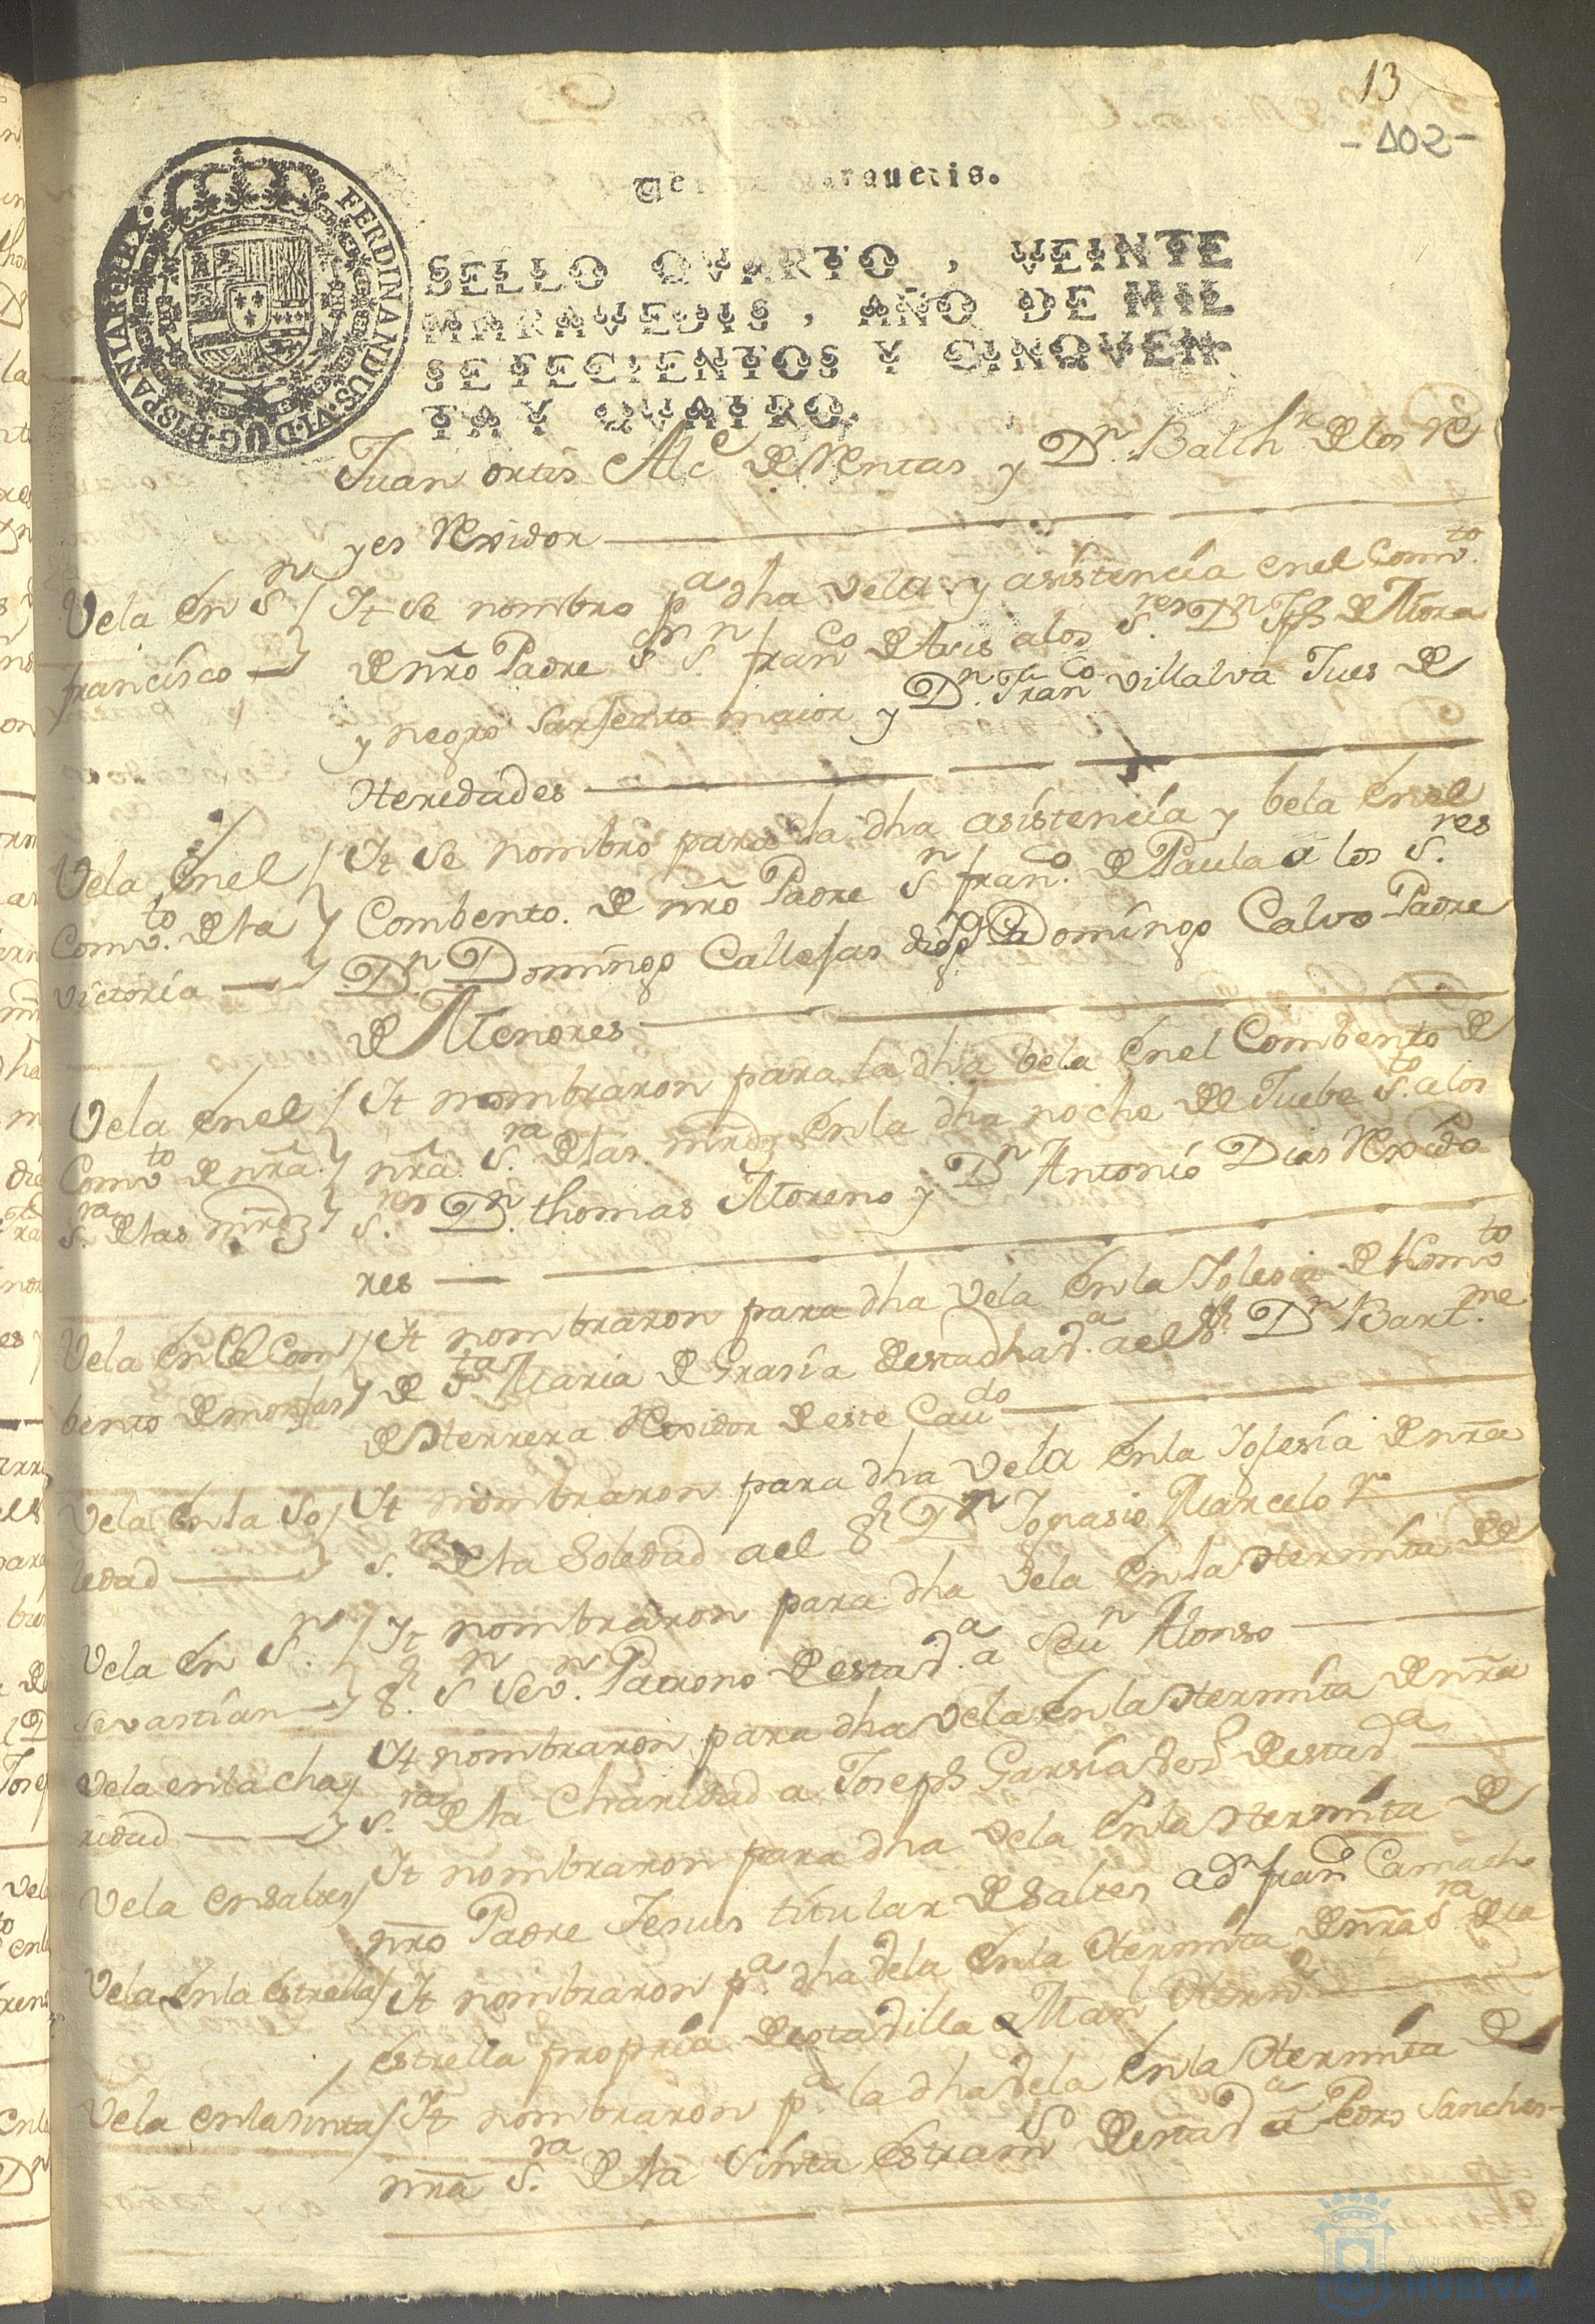 13
-102-
FERDINANDUS.VI.D.G.HISPANIAR.REX.
SELLO QVARTO, VEINTE
MARAVEDIS, AÑO DE MIL
SETECIENTOS Y CINQVEN
TA Y QVATRO.
Juan ortis Alce de Rentas y Dn Balthr de los Re
yes Rexidor
Vela en Sn It Se nombro pa dha vela y asistencia en el Comvto
francisco de nro Padre Sr Sn franco de Asis a los Sres Dn Jph de Mora
y negro Sarjento maior y Dn Franco Villalva Jues de
Heredades
Vela en el It Se nombro para la dha asistencia y bela en el
Comvto de la Combento de nro Padre Sn franco de Paula a los Sres
victoria Dn Domingo Callejas Domingo Calvo Padre
de Menores
Vela en el It nombraron para la dha bela en el Combento de
Comvto de nra nra Sra de las mrds en la dha noche de Juebe Sto a los
Sra de las mrds Sres Dn thomas Moreno y Dn Antonio Dias Rexido
res
Vela en el Com It nombraron para dha vela en la Iglesia del Comvto
bento de monjas de Sta Maria de Grasia de esta dha va a el Sr Dn Bartme
de Herrera Rexidor de este Cavdo
Vela en la So It nombraron para dha Vela en la Iglesia de nra
ledad Sra de la Soledad a el Sr Dn Ignasio Marcelo
Vela en Sn It nombraron para dha Vela en la Hermita de
Sevastian Sr Sn Sevn Patrono de esta va a Sevn Alonso
Vela en la cha It nombraron para dha Vela en la Hermita de nra
ridad Sra de la Charidad a Joseph Garsia de esta va
Vela en saltes It nombraron para dha Vela en la Hermita de
nro Padre Jesus titular de saltes a Dn franco Camacho
Vela en la estrella It nombraron pa dha Vela en la Hermita de nra Sra de la
estrella propria de esta villa a Man Hern
Vela en la sinta It nombraron pa la dha Vela en la Hermita de
nra Sra de la Sinta de esta va a Pedro Sanches
Ayuntamiento de
HUELVA